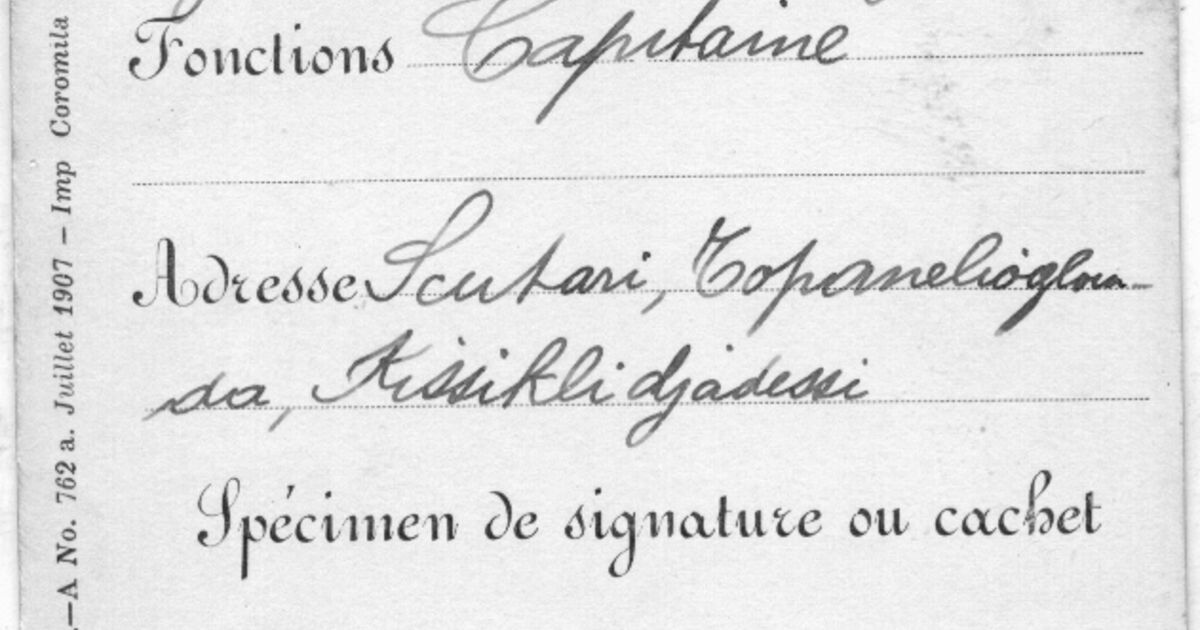 Fonctions Capitaine
Adresse Scutari, Topanelioglou-
da, Kissikli djadessi
Spécimen de signature ou cachet
—A No. 762 a. Juillet 1907 — Imp Coromila